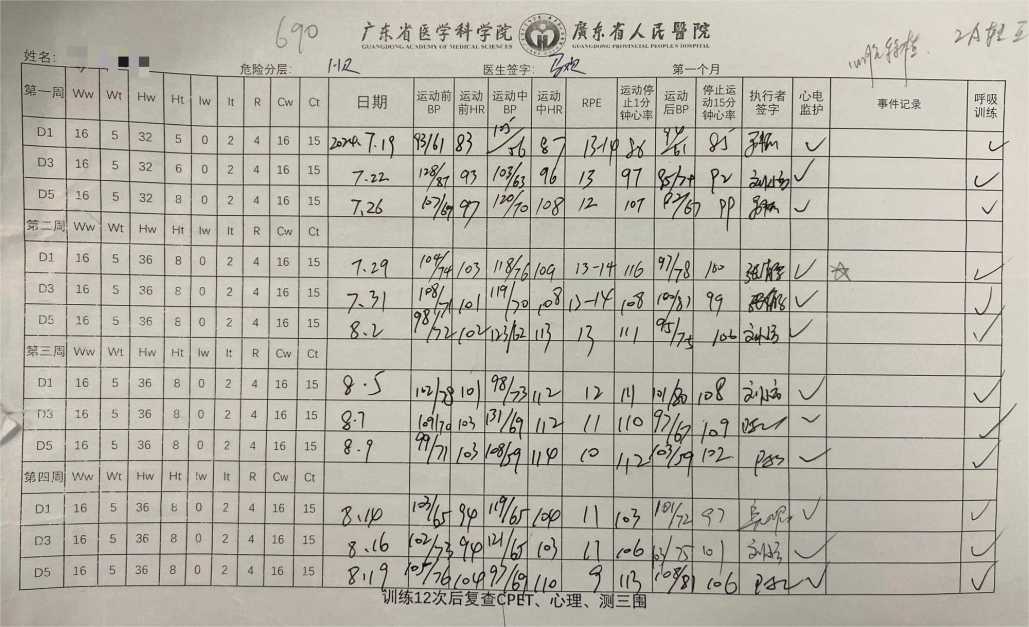 690
广东省医学科学院 廣东省人民醫院
GUANGDONG ACADEMY OF MEDICAL SCIENCES GUANGDONG PROVINCIAL PEOPLE'S HOSPITAL
姓名: 危险分层: 医生签字: 第一个月
第一周 Ww Wt Hw Ht Iw It R Cw Ct 日期 运动前BP 运动前HR 运动中BP 运动中HR RPE 运动停止1分钟心率 运动后BP 停止运动15分钟心率 执行者签字 心电监护 事件记录 呼吸训练
D1 16 5 32 5 0 2 4 16 15 2024. 7.19 93/61 83 105/56 87 13-14 86 94/61 85 ✓ ✓
D3 16 5 32 6 0 2 4 16 15 7.22 128/87 93 103/63 96 13 97 85/74 92 ✓ ✓
D5 16 5 32 8 0 2 4 16 15 7.26 107/69 97 120/70 108 12 107 92/67 99 ✓ ✓
第二周 Ww Wt Hw Ht Iw It R Cw Ct
D1 16 5 36 8 0 2 4 16 15 7.29 104/74 103 118/76 109 13-14 116 97/78 100 ✓ ☆ ✓
D3 16 5 36 8 0 2 4 16 15 7.31 108/71 101 119/70 108 13-14 108 99 ✓ ✓
D5 16 5 36 8 0 2 4 16 15 8.2 98/72 102 123/62 113 13 111 95/75 106 ✓ ✓
第三周 Ww Wt Hw Ht Iw It R Cw Ct
D1 16 5 36 8 0 2 4 16 15 8.5 102/78 101 98/73 112 12 111 101/80 108 ✓ ✓
D3 16 5 36 8 0 2 4 16 15 8.7 109/70 103 131/69 112 11 110 97/67 109 ✓ ✓
D5 16 5 36 8 0 2 4 16 15 8.9 99/71 103 108/59 114 10 112 103/59 102 ✓ ✓
第四周 Ww Wt Hw Ht Iw It R Cw Ct
D1 16 5 36 8 0 2 4 16 15 8.14 103/65 94 119/65 104 11 103 101/72 97 ✓ ✓
D3 16 5 36 8 0 2 4 16 15 8.16 102/73 94 121/65 103 106 103/75 101 ✓ ✓
D5 16 5 36 8 0 2 4 16 15 8.19 105/76 104 97/69 110 9 113 108/81 106 ✓ ✓
训练12次后复查CPET、心理、测三围